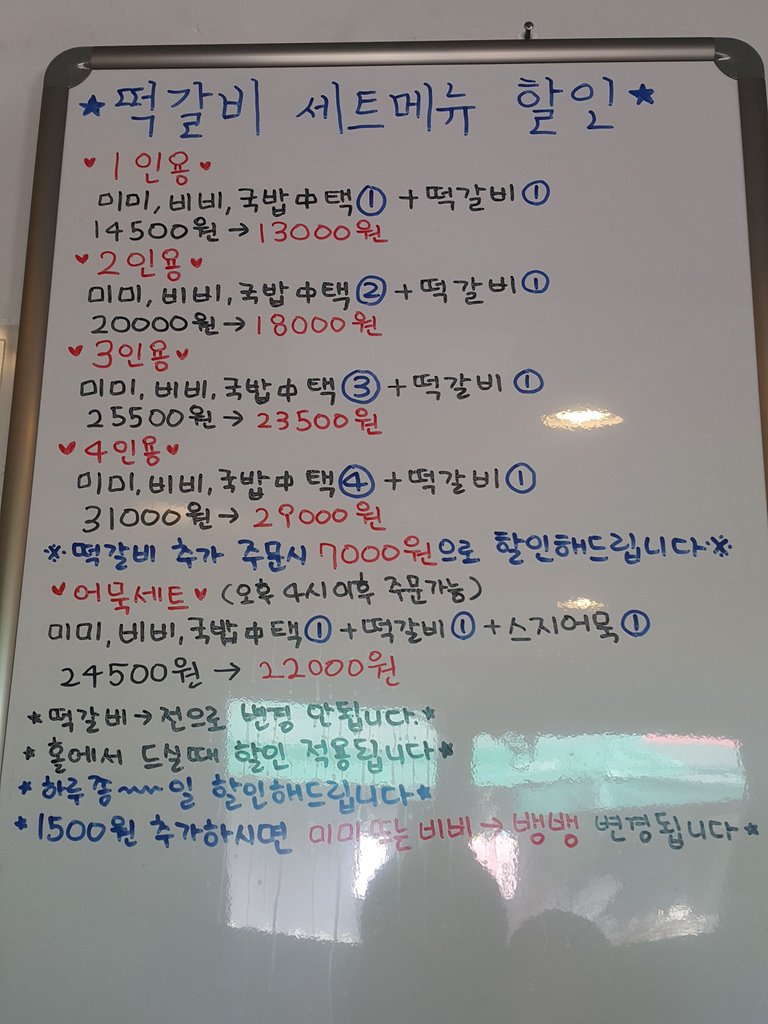 ★떡갈비 세트메뉴 할인★
♥1인용♥
미미, 비비, 국밥 中 택① + 떡갈비①
14500원→13000원
♥2인용♥
미미, 비비, 국밥 中 택② + 떡갈비①
20000원→18000원
♥3인용♥
미미, 비비, 국밥 中 택③ + 떡갈비①
25500원→23500원
♥4인용♥
미미, 비비, 국밥 中 택④ + 떡갈비①
31000원→29000원
※떡갈비 추가 주문시 7000원으로 할인해드립니다※
♥어묵세트♥ (오후 4시이후 주문가능)
미미, 비비, 국밥 中 택① + 떡갈비① + 스지어묵①
24500원 → 22000원
★떡갈비→전으로 변경 안됩니다.★
★홀에서 드실때 할인 적용됩니다★
★하루종~~일 할인해드립니다★
★1500원 추가하시면 미미또는비비→뱅뱅 변경됩니다★